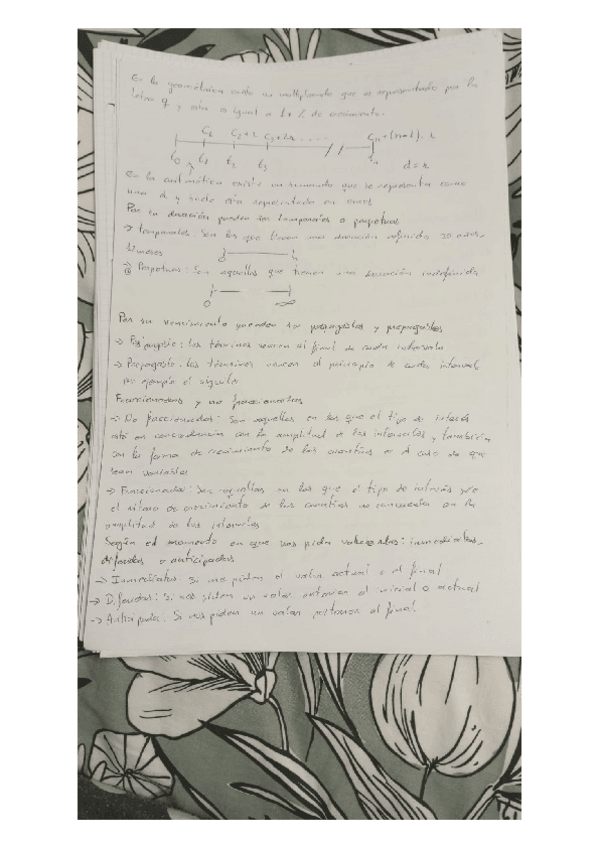 En la geométrica existe un multiplicando que es representado por la
letra q y esta es igual a 1 + % de crecimiento.
C1 C2+x C3+2x ...... Cn+(n-1).x
t0 t1 t2 t3 tn d=x
En la aritmética existe un sumando que se representa como
una d y suele esta representado en euros
Por su duración pueden ser temporales o perpetuas
→ Temporales: Son las que tienen una duración definida 20 años,
12 meses
Perpetuas: Son aquellas que tienen una duración indefinida
0 ∞
Por su vencimiento pueden ser pospagables y prepagables
→ Pospagable: los términos vencen al final de cada intervalo
→ Prepagable: los términos vencen al principio de cada intervalo,
por ejemplo el alquiler
Fraccionadas y no fraccionadas
→ No fraccionadas: Son aquellas en las que el tipo de interés
está en concordancia con la amplitud de los intervalos y también
con la forma de crecimiento de las cuantías en el caso de que
sean variables
→ Fraccionadas: Son aquellas en las que el tipo de interés y/o
el ritmo de crecimiento de las cuantías no concuerdan con la
amplitud de los intervalos
Según el momento en que nos pidan valorarlas: inmediatas,
diferidas o anticipadas
→ Inmediatas: Si nos piden el valor actual o al final
→ Diferidas: Si nos piden un valor anterior al inicial o actual
→ Anticipada: Si nos piden un valor posterior al final.